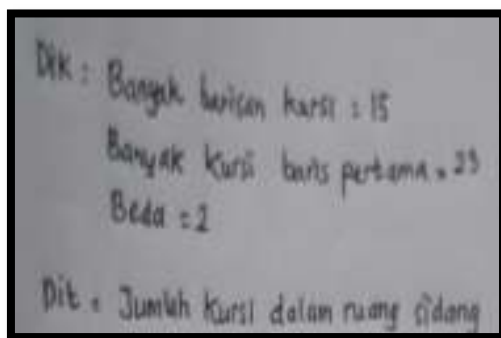 Dik : Banyak barisan kursi : 15
Banyak kursi baris pertama = 23
Beda = 2
Dit = Jumlah kursi dalam ruang sidang